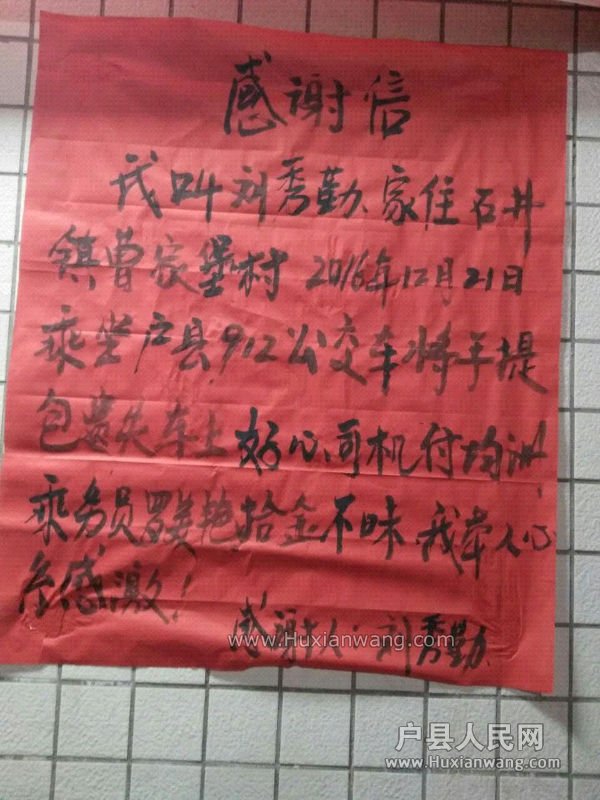 感谢信
我叫刘秀勤、家住石井
镇曹家堡村 2016年12月21日
乘坐户县912公交车将手提
包遗失车上 好心司机付均
乘务员罗美艳拾金不昧、我本人心
感激！
感谢人：刘秀勤
www.Huxianwang.com
户县人民网
www.Huxianwang.com